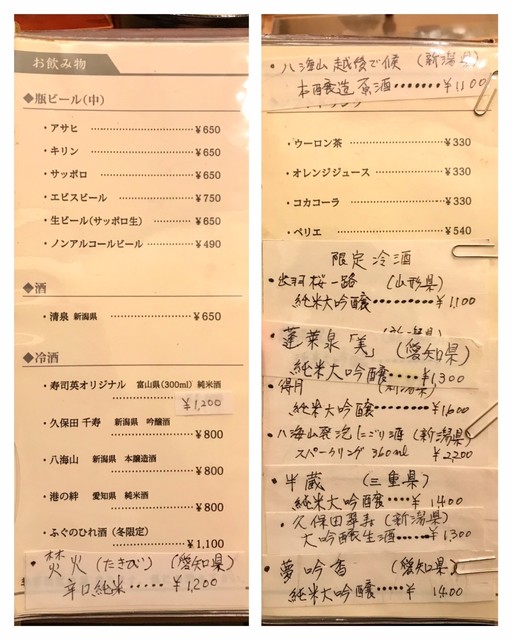 お飲み物
◆瓶ビール(中)
・アサヒ ………………… ￥650
・キリン ………………… ￥650
・サッポロ ………………… ￥650
・エビスビール ………………… ￥750
・生ビール(サッポロ生) ………… ￥650
・ノンアルコールビール ………… ￥490
◆酒
・清泉 新潟県 ………………… ￥650
◆冷酒
・寿司英オリジナル 富山県(300ml) 純米酒
………………… ￥1,200
・久保田 千寿 新潟県 吟醸酒
………………… ￥800
・八海山 新潟県 本醸造酒
………………… ￥800
・港の絆 愛知県 純米酒
………………… ￥800
・ふぐのひれ酒 (冬限定)
………………… ￥1,100
・焚火 (たきび) (愛知県)
辛口純米・・・・・ ￥1,200
・八海山 越後で候 (新潟県)
本醸造 原酒・・・・・・・・ ￥1100
・ウーロン茶 ………………… ￥330
・オレンジジュース ………………… ￥330
・コカコーラ ………………… ￥330
・ペリエ ………………… ￥540
限定 冷酒
・出羽桜 一路 (山形県)
純米大吟醸・・・・・・・・ ￥1,100
・蓬莱泉「美」 (愛知県)
純米大吟醸・・・・・ ￥1,300
・得月
純米大吟醸・・・・・・ ￥1,600
・八海山発泡にごり酒 (新潟県)
スパークリング 360ml ￥2,200
・半蔵 (三重県)
純米大吟醸・・・・ ￥1400
・久保田萬寿 (新潟県)
大吟醸生酒・・・・・ ￥1,300
・夢吟香 (愛知県)
純米大吟醸・・・・ ￥1400